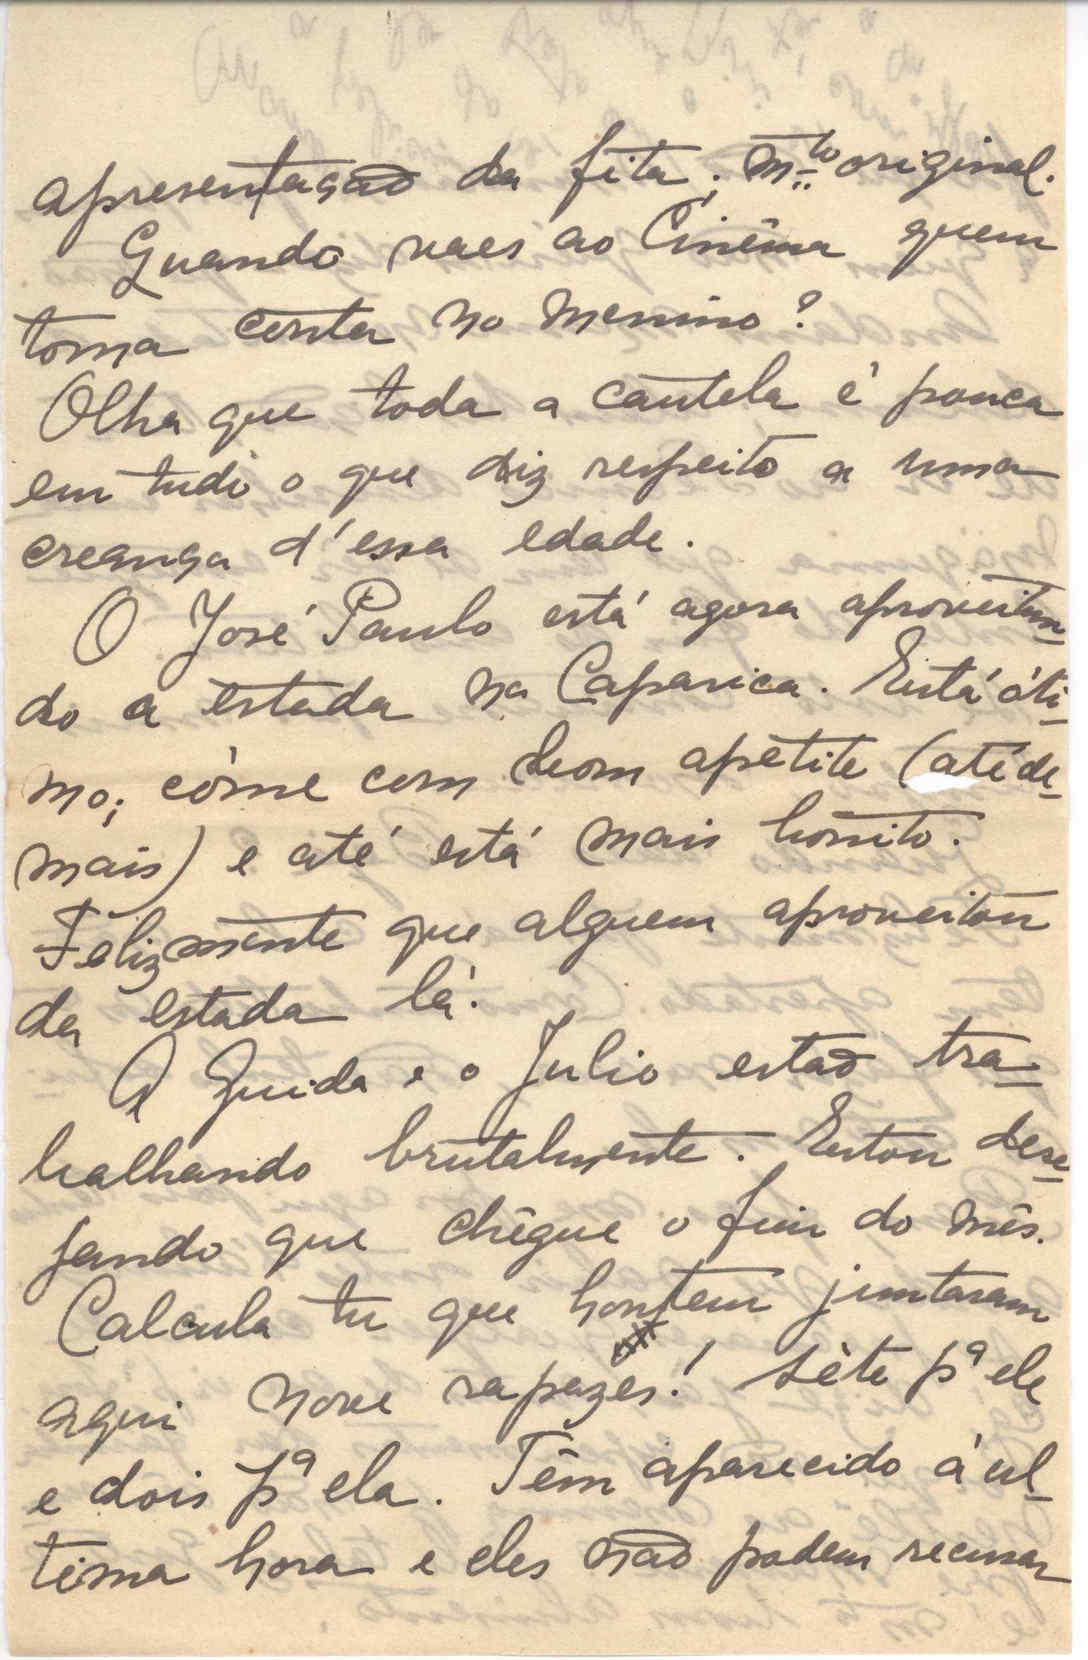 apresentação da fita; mto original.
Quando vaes ao Cinêma quem
toma conta no menino?
Olha que toda a cautela é pouca
em tudo o que diz respeito a uma
creança d'essa edade.
O José Paulo está agora aproveitan-
do a estada na Caparica. Está óti-
mo; cóme com bom apetite (até de-
mais) e até está mais bonito.
Felizmente que alguem aproveitou
da estada lá.
A Guida e o Julio estão tra-
balhando brutalmente. Estou dese-
jando que chêgue o fim do mês.
Calcula tu que hontem juntaram
aqui nove rapazes! séte pª ele
e dois pª ela. Têm aparecido á ul-
tima hora e eles não podem recusar